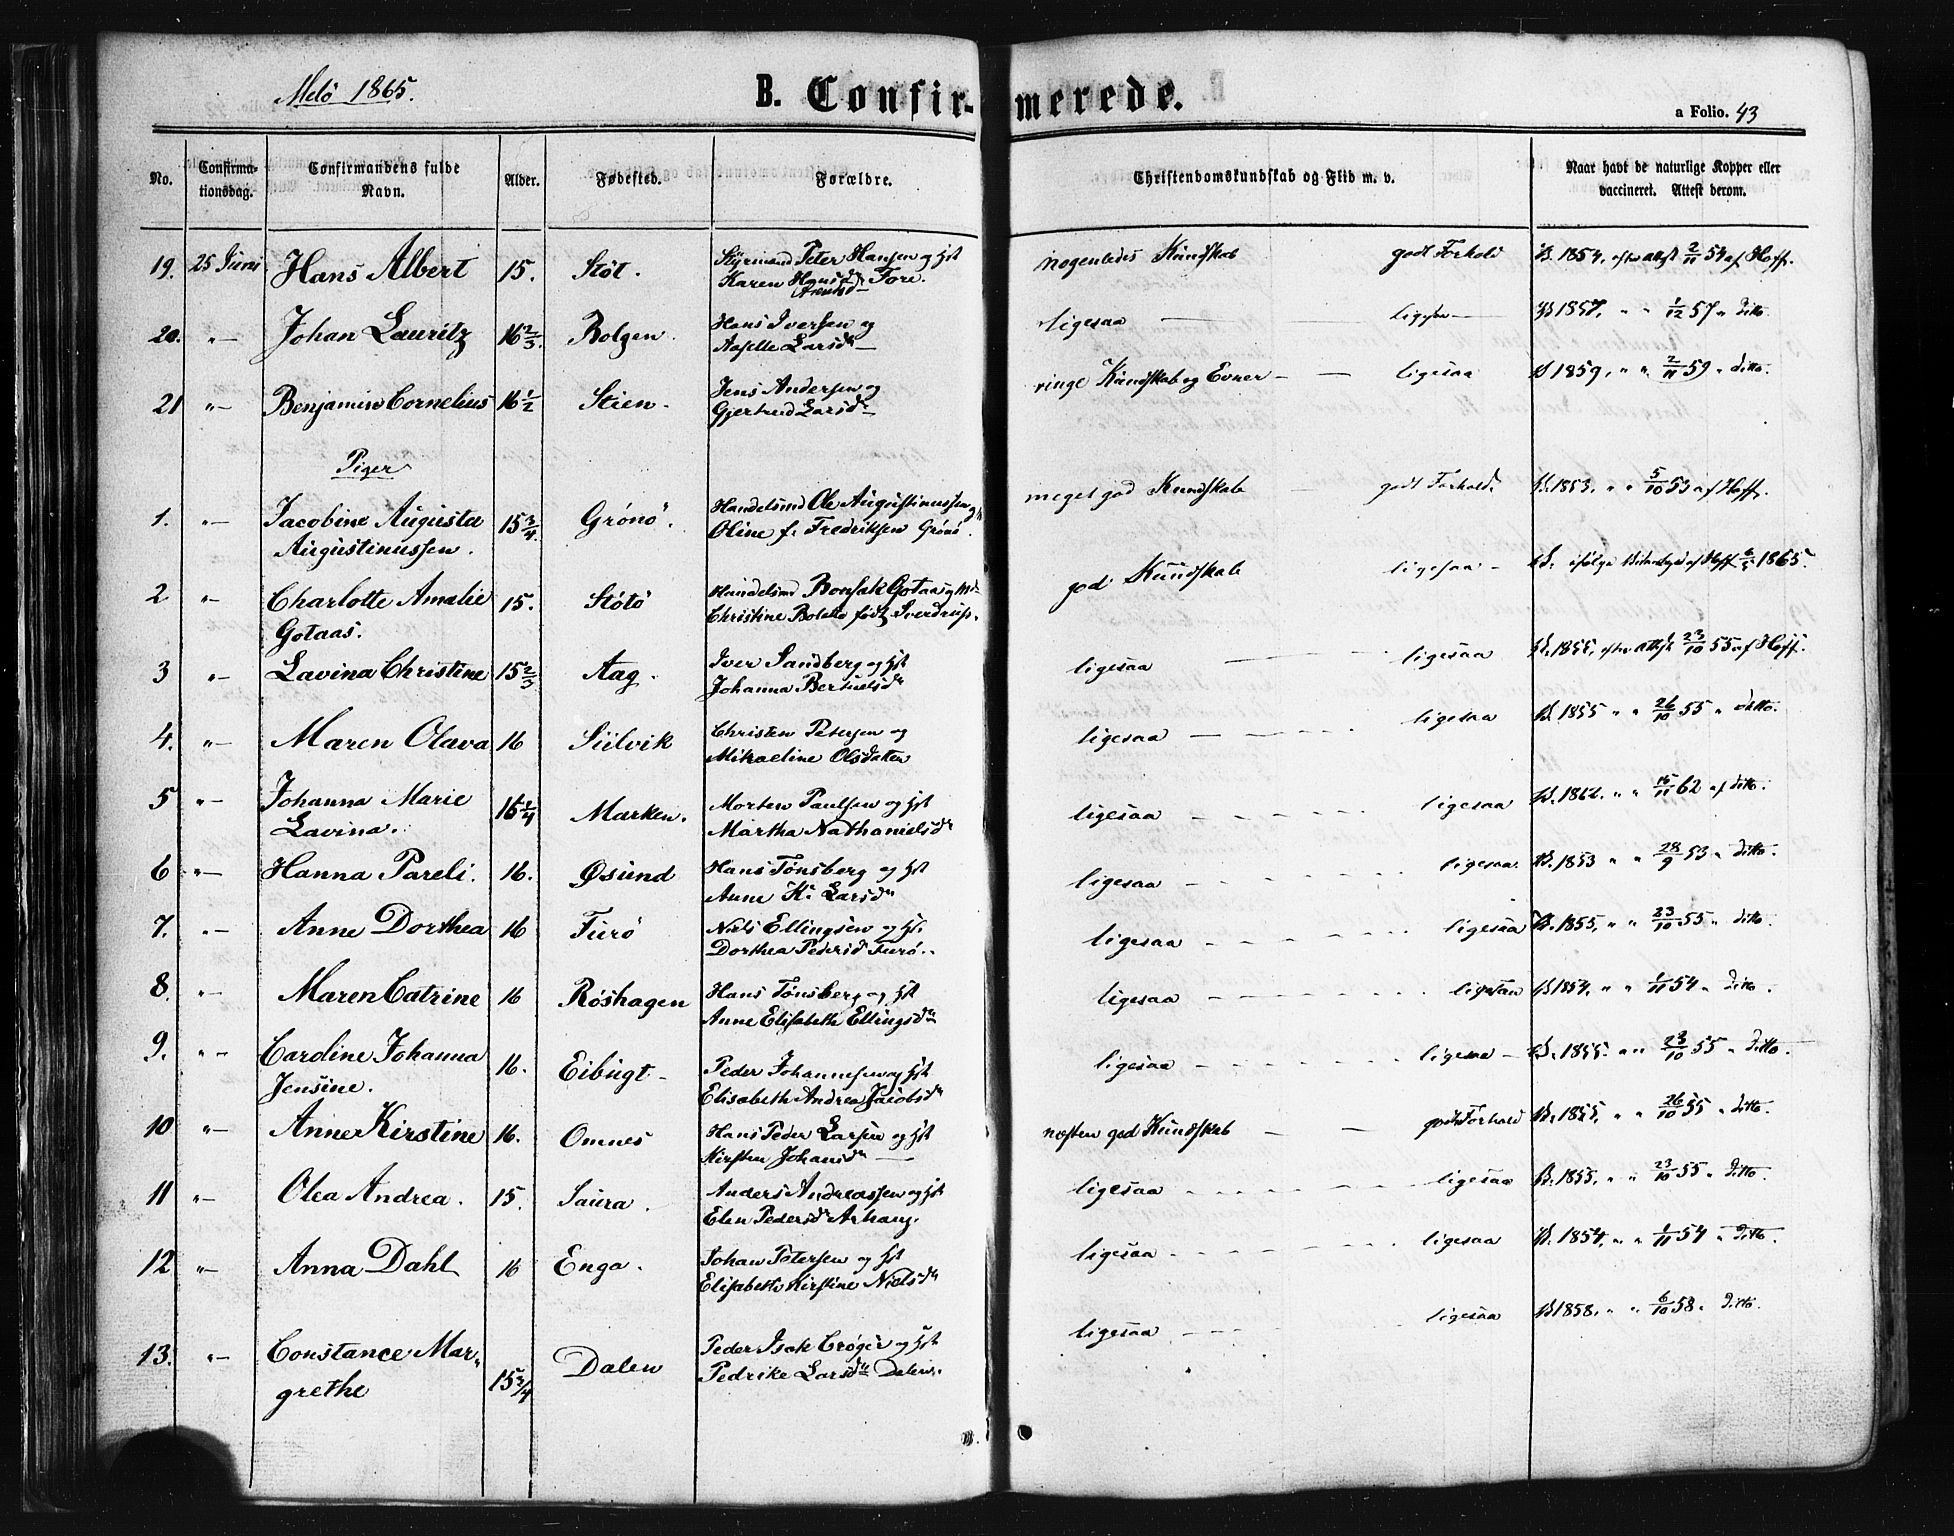 Melö 1865.
B. Confir-merede.
a Folio. 43
No. Confirma-tionsdag. Confirmandens fulde Navn. Alder. Fødested. Forældre. Christendomskundskab og Flid m. v. Naar havt de naturlige Kopper eller vaccineret. Attest derom.
19. 25 Juni Hans Albert 15. Stöt. Styrmand Peter Hansen og Hst Karen Hansdr Arntsdr Fore. nogenledes Kundskab godt Forhold V. 1854, efter attest 2/11 54 af Hoff.
20. " Johan Lauritz 16 2/3. Bolgen. Hans Iversen og Aaselle Larsdr ligesaa ligesaa V. 1857, " " 1/12 57 " ditto.
21 " Benjamin Cornelius 16 1/2 Stien. Jens Andersen og Gjertrud Larsdr ringe Kundskab og Evner ligesaa V. 1859, " " 2/11 59 " ditto.
Piger
1. " Jacobine Augusta Augustinussen. 15 3/4. Grönö. Handelsmd Ole Augustinussen og Oline f. Fredriksen Grönö. meget god Kundskab godt Forhold. V. 1853. " " 5/10 53 af Hoff.
2 " Charlotte Amalie Gotaas. 15. Stötö Handelsmd Bonsak Gotaas og Md Christine Bolette født Sverdrup. god Kundskab ligesaa V. ifölge af Hoff 1865.
3 " Lavina Christine 15 2/3 Aag. Iver Sandberg og Hst Johanna Bertuelsdr ligesaa ligesaa V. 1855, efter attest 23/10 55 af Hoff.
4. " Maren Olava 16 Sülvik Christen Petersen og Mikaeline Olsdatter ligesaa ligesaa V. 1855 " " 26/10 55 " ditto.
5 " Johanna Marie Lavina. 15 1/4 Marken. Morten Paulsen og Hst Martha Nathanielsdr ligesaa ligesaa V. 1862. " " 15/11 62 af ditto.
6 " Hanna Pareli. 16. Øsund Hans Tönsberg og Hst Anne K. Larsdr ligesaa ligesaa. V. 1853 " " 28/9 53 " ditto.
7. " Anne Dorthea 16 Furö Niels Ellingsen og Hst. Dorthea Pedersd Furö. ligesaa ligesaa V. 1855, " " 23/10 55 " ditto.
8. " Maren Catrine 16 Röshagen Hans Tönsberg og Hst Anne Elisabeth Ellingsdr ligesaa ligesaa V. 1854, " " 1/11 54 " ditto.
9. " Caroline Johanna Jensine. 16. Eibugt Peder Johannesen og Hst Elisabeth Andrea Jacobsdr ligesaa ligesaa V. 1855. " " 23/10 55 " ditto.
10 " Anne Kirstine 16. Omnes Hans Peder Larsen og Hst Kirsten Johansdr næsten god Kundskab godt Forhold V. 1855, " " 26/10 55 " ditto.
11 " Olea Andrea. 15. Saura. Anders Andreassen og Hst Elen Pedersdr Arhaug. ligesaa ligesaa V. 1855, " " 23/10 55 " ditto.
12 " Anna Dahl 16 Enga. Johan Petersen og Hst Elisabeth Kirstine Nielsdr ligesaa ligesaa V. 1854, " " 1/11 54 " ditto.
13. " Constance Mar-grethe 15 3/4 Dalen Peder Isak Cröger og Hst Pedrike Larsdr Dalen. ligesaa ligesaa V. 1858, " " 6/10 58 " ditto.